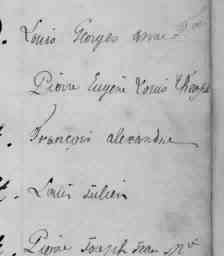 Louis Georges
Pierre Eugène Louis
François alexandre
Louis Julien
Pierre Joseph Jean